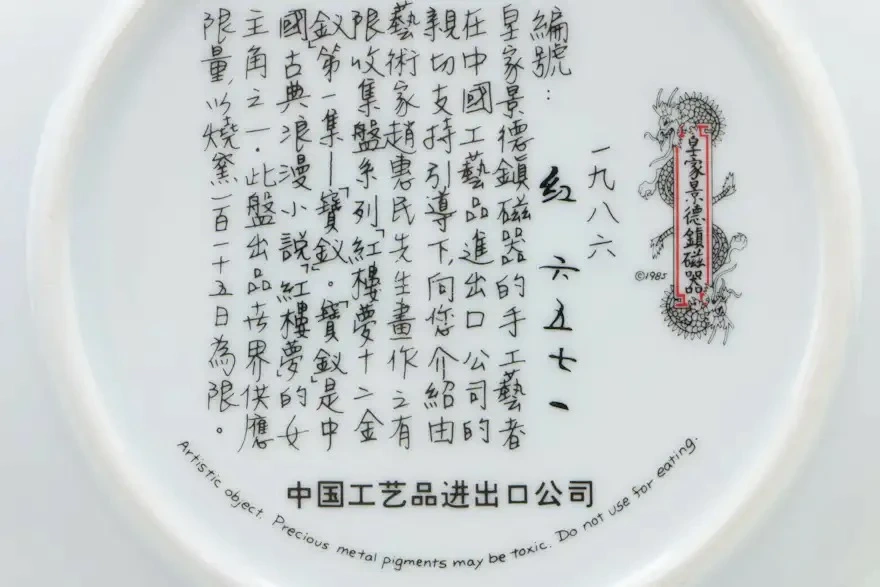 皇家景德鎮磁器
©1985
一九八六
編號:
紅 六五七一
皇家景德鎮磁器的手工藝者
在中國工藝品進出口公司的
親切支持引導下,向您介紹由
藝術家趙惠民先生畫作之有
限收集盤系列「紅樓夢十二金
釵」第一集—「寶釵」。「寶釵」是中
國古典浪漫小說「紅樓夢」的女
主角之一.此盤出品世界供應
限量,以燒窯一百一十五日為限。
中国工艺品进出口公司
Artistic object. Precious metal pigments may be toxic. Do not use for eating.